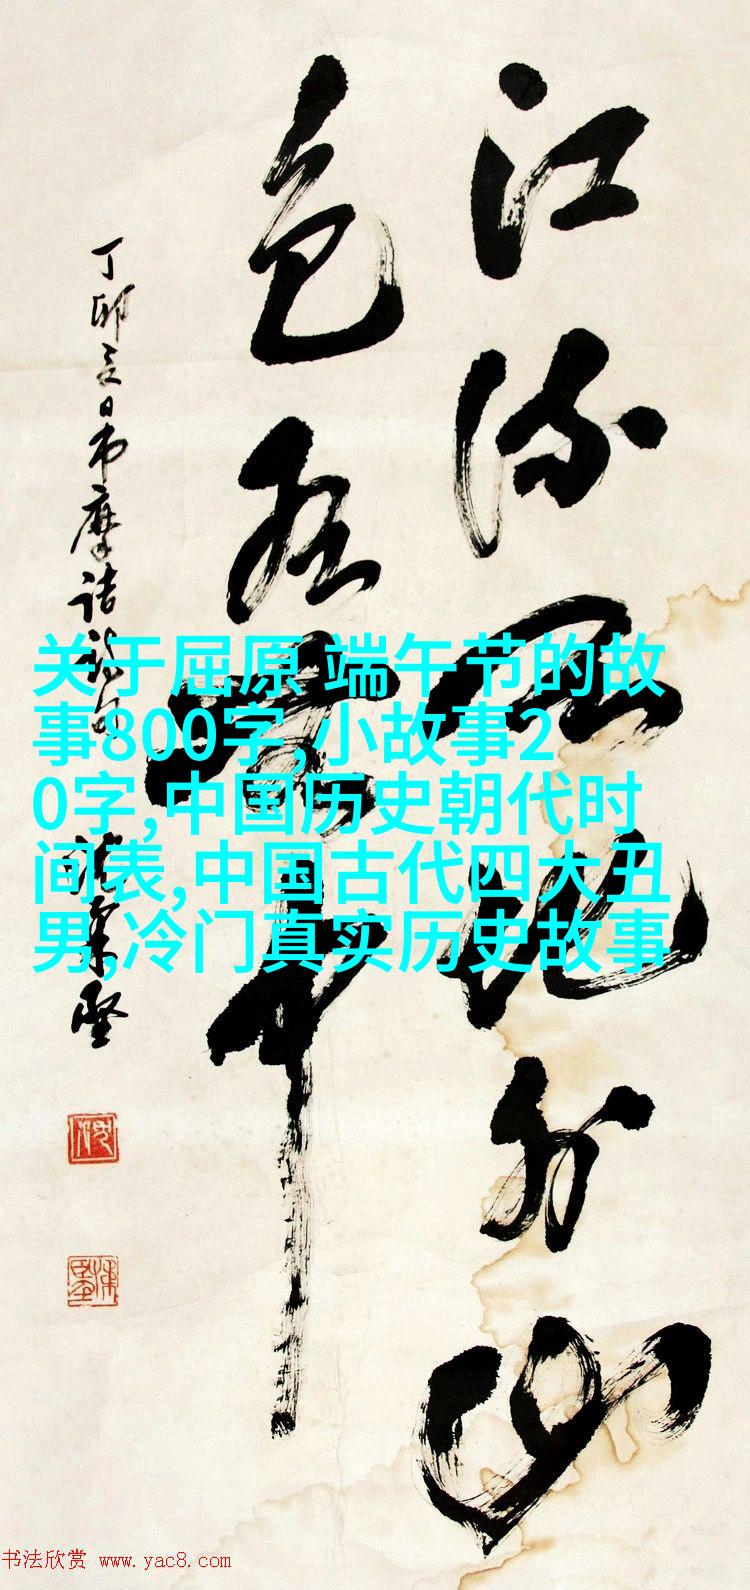 江流天地外山
色有無中
丁卯夏日书摩诘诗句
关于屈原 端午节的故
事800字,小故事2
0字,中国历史朝代时
间表,中国古代四大丑
男,冷门真实历史故事
书法欣赏 www.yac8.com